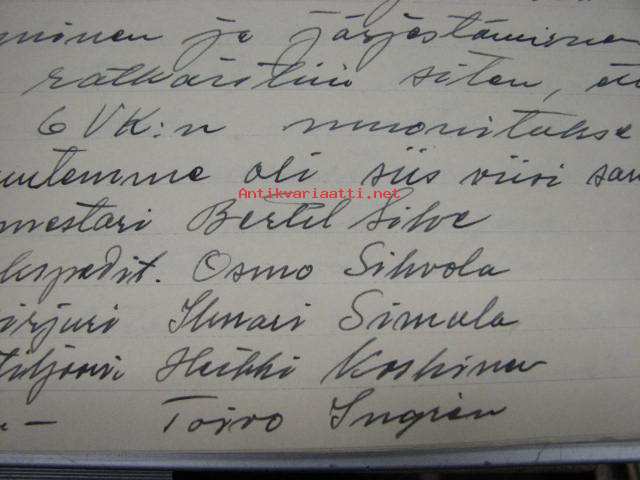 minen ja järjestäminen
ratkaistiin siten, että
6 VK:n muonitukse
uutemme oli siis viisi san
Antikvariaatti.net
mestari Bertel Silve
ekspedit. Osmo Sihvola
irjuri Ilmari Simola
Heikki Koskinen
" — Toivo Ingren